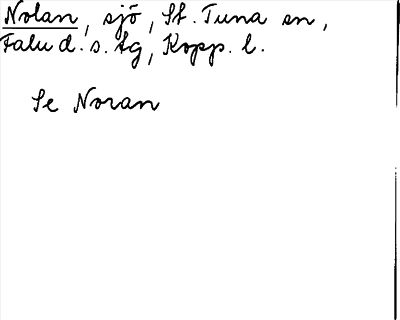 Nolan, sjö, St. Tuna sn,
Falu d. s. tg, Kopp. l.
Se Noran